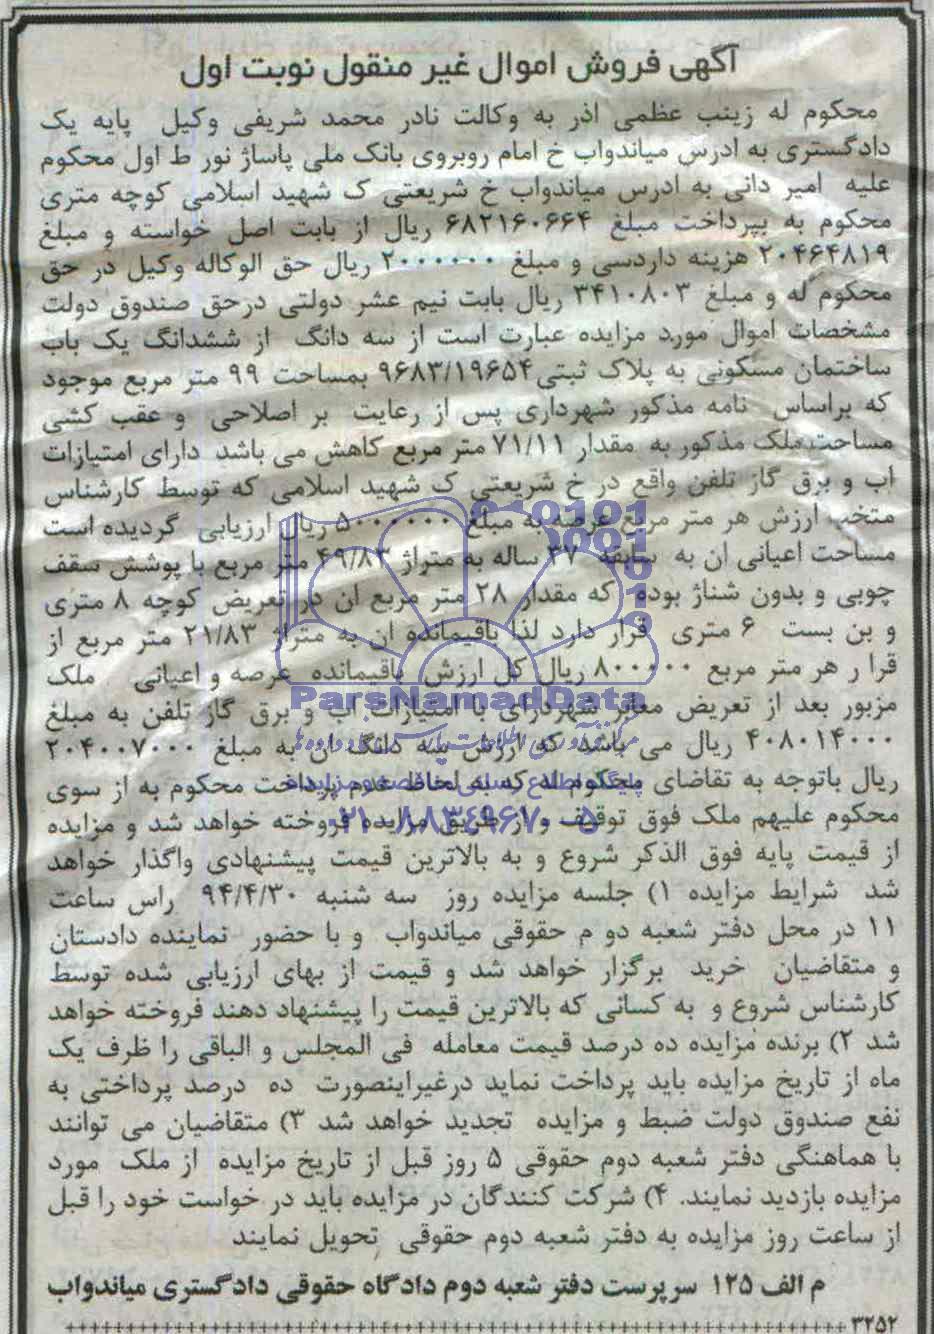 آگهی فروش اموال غیر منقول نوبت اول
محکوم له زینب عظمی اذر به وکالت نادر محمد شریفی وکیل پایه یک
دادگستری به ادرس میاندواب خ امام روبروی بانک ملی پاساژ نور ط اول محکوم
علیه امیر دانی به ادرس میاندواب خ شریعتی ک شهید اسلامی کوچه متری
محکوم به بپرداخت مبلغ ۶۸۲۱۶۰۶۶۴ ریال از بابت اصل خواسته و مبلغ
۲۰۴۶۴۸۱۹ هزینه داردسی و مبلغ ۲۰۰۰۰۰۰ ریال حق الوکاله وکیل در حق
محکوم له و مبلغ ۳۴۱۰۸۰۳ ریال بابت نیم عشر دولتی درحق صندوق دولت
مشخصات اموال مورد مزایده عبارت است از سه دانگ از ششدانگ یک باب
ساختمان مسکونی به پلاک ثبتی ۹۶۸۳/۱۹۶۵۴ بمساحت ۹۹ متر مربع موجود
که براساس نامه مذکور شهرداری پس از رعایت بر اصلاحی و عقب کشی
مساحت ملک مذکور به مقدار ۷۱/۱۱ متر مربع کاهش می باشد دارای امتیازات
اب و برق گاز تلفن واقع در خ شریعتی ک شهید اسلامی که توسط کارشناس
منتخب ارزش هر متر مربع عرصه به مبلغ ۵۰۰۰۰۰۰ ریال ارزیابی گردیده است
مساحت اعیانی ان به سابقه ۳۷ ساله به متراژ ۴۹/۸۳ متر مربع با پوشش سقف
چوبی و بدون شناژ بوده که مقدار ۲۸ متر مربع ان در تعریض کوچه ۸ متری
و بن بست ۶ متری قرار دارد لذا باقیمانده ان به متراژ ۲۱/۸۳ متر مربع از
قرا ر هر متر مربع ۸۰۰۰۰۰ ریال کل ارزش باقیمانده عرصه و اعیانی ملک
مزبور بعد از تعریض معابر شهرداری با امتیازات اب و برق گاز تلفن به مبلغ
۴۰۸۰۱۴۰۰۰ ریال می باشد که ارزش سه دانگ ان به مبلغ ۲۰۴۰۰۷۰۰۰
ریال باتوجه به تقاضای محکوم له که به لحاظ عدم پرداخت محکوم به از سوی
محکوم علیهم ملک فوق توقیف و از طریق مزایده فروخته خواهد شد و مزایده
از قیمت پایه فوق الذکر شروع و به بالاترین قیمت پیشنهادی واگذار خواهد
شد شرایط مزایده ۱) جلسه مزایده روز سه شنبه ۹۴/۴/۳۰ راس ساعت
۱۱ در محل دفتر شعبه دو م حقوقی میاندواب و با حضور نماینده دادستان
و متقاضیان خرید برگزار خواهد شد و قیمت از بهای ارزیابی شده توسط
کارشناس شروع و به کسانی که بالاترین قیمت را پیشنهاد دهند فروخته خواهد
شد ۲) برنده مزایده ده درصد قیمت معامله فی المجلس و الباقی را ظرف یک
ماه از تاریخ مزایده باید پرداخت نماید درغیراینصورت ده درصد پرداختی به
نفع صندوق دولت ضبط و مزایده تجدید خواهد شد ۳) متقاضیان می توانند
با هماهنگی دفتر شعبه دوم حقوقی ۵ روز قبل از تاریخ مزایده از ملک مورد
مزایده بازدید نمایند. ۴) شرکت کنندگان در مزایده باید در خواست خود را قبل
از ساعت روز مزایده به دفتر شعبه دوم حقوقی تحویل نمایند
م الف ۱۲۵ سرپرست دفتر شعبه دوم دادگاه حقوقی دادگستری میاندواب
۳۲۵۲
ParsNamadData
۰۲۱-۸۸۳۴۹۶۷۰-۵